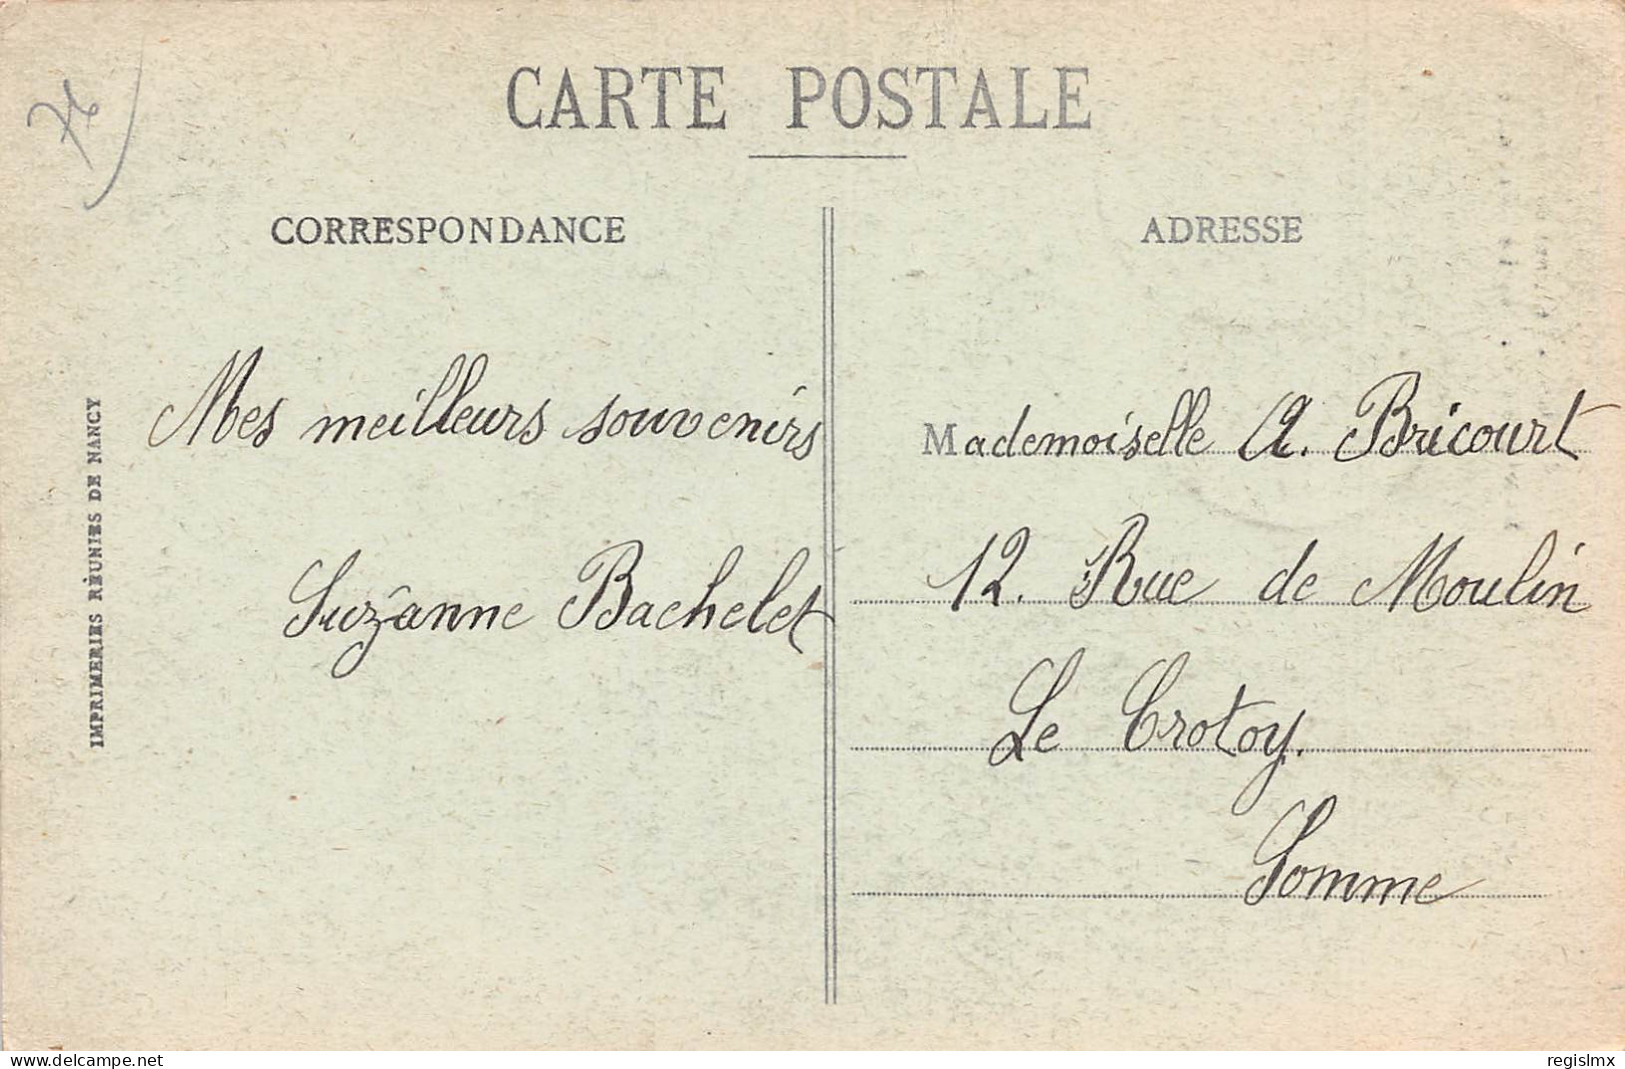 CARTE POSTALE
CORRESPONDANCE
Mes meilleurs souvenirs
Suzanne Bachelet
IMPRIMERIES RÉUNIES DE NANCY
ADRESSE
Mademoiselle A. Bricourt
12. Rue de Moulin
Le Crotoy.
Somme
www.delcampe.net
regislmx